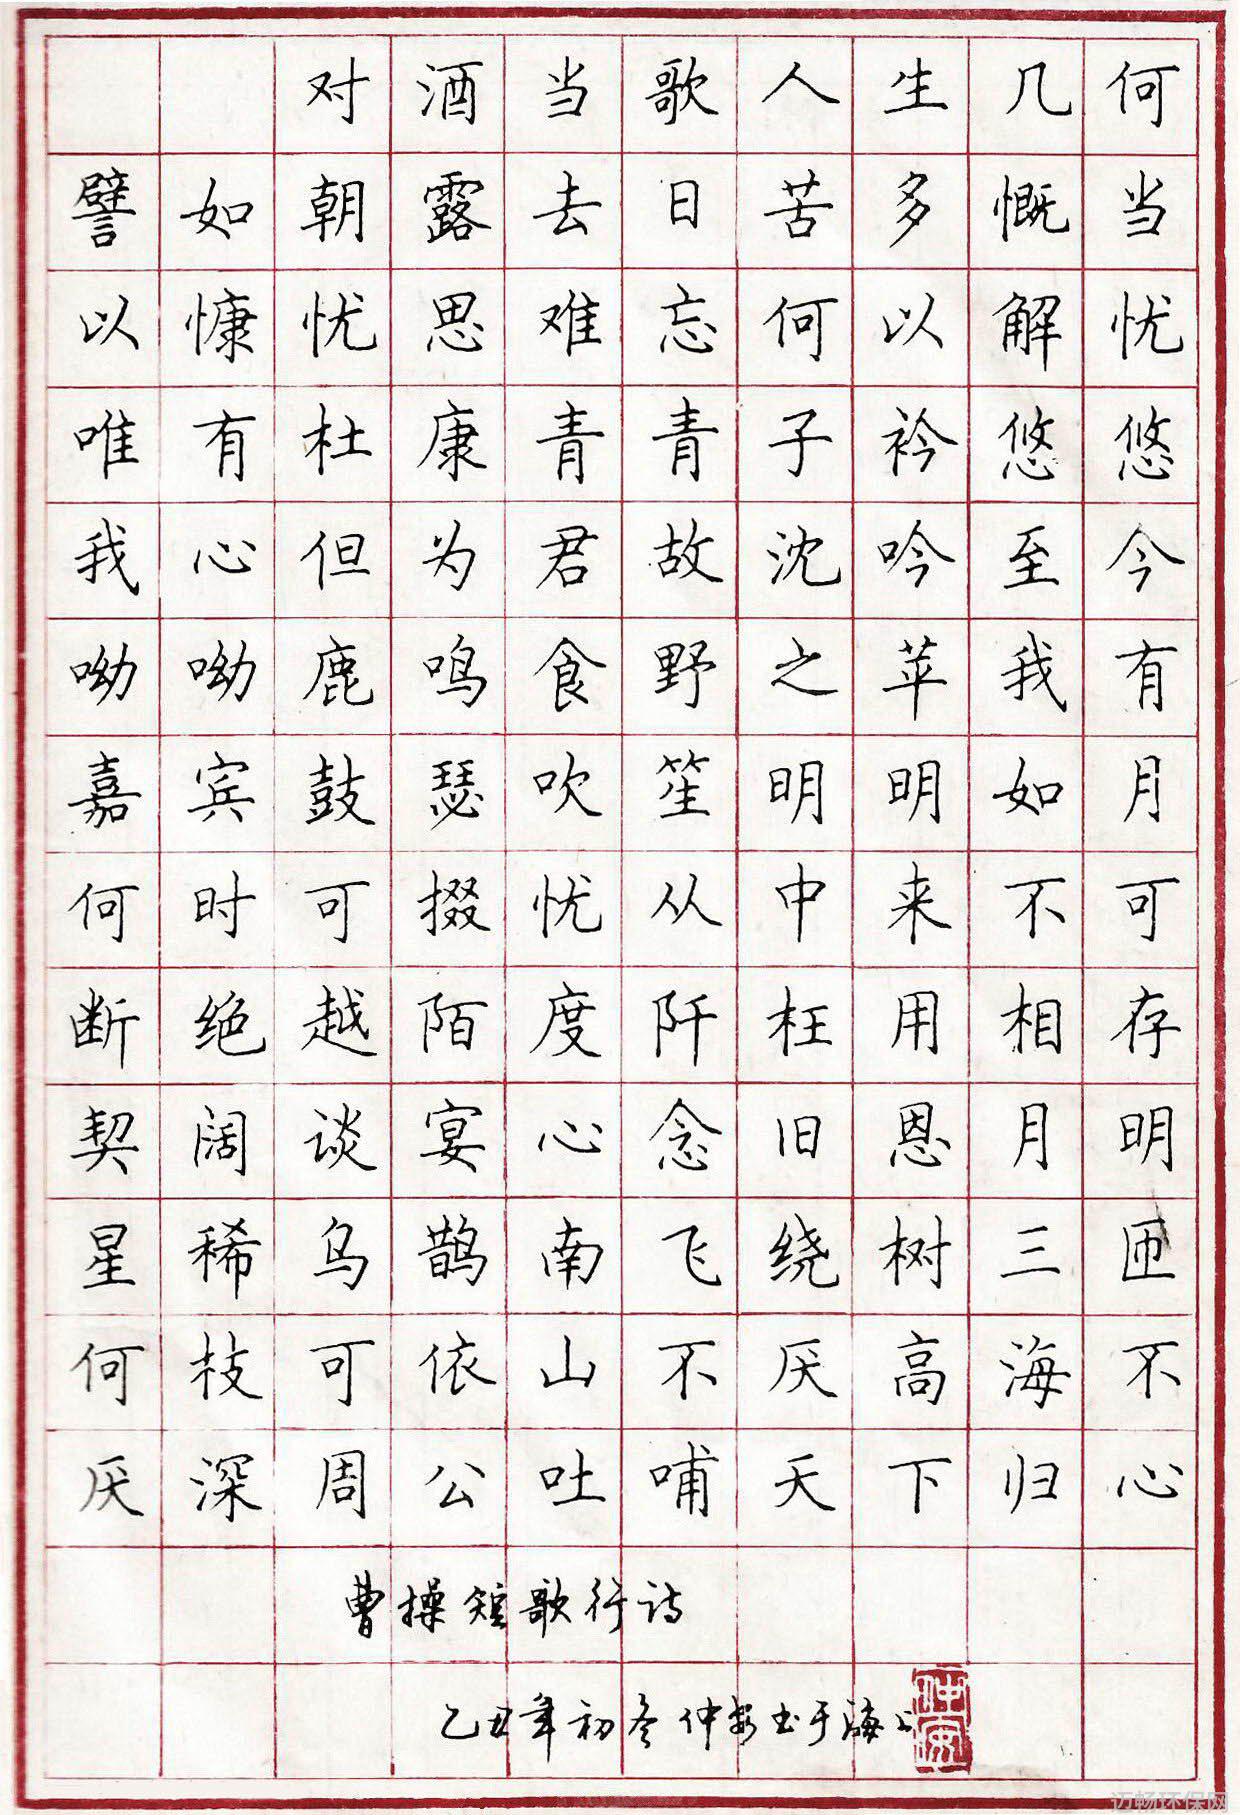 对酒当歌人生几何
譬如朝露去日苦多慨当
以慷忧思难忘何以解忧
唯有杜康青青子衿悠悠
我心但为君故沈吟至今
呦呦鹿鸣食野之苹我有
嘉宾鼓瑟吹笙明明如月
何时可掇忧从中来不可
断绝越陌度阡枉用相存
契阔谈宴心念旧恩月明
星稀乌鹊南飞绕树三匝
何枝可依山不厌高海不
厌深周公吐哺天下归心
曹操短歌行诗
乙丑年初冬仲安书于海上
仲安
迈畅环保网